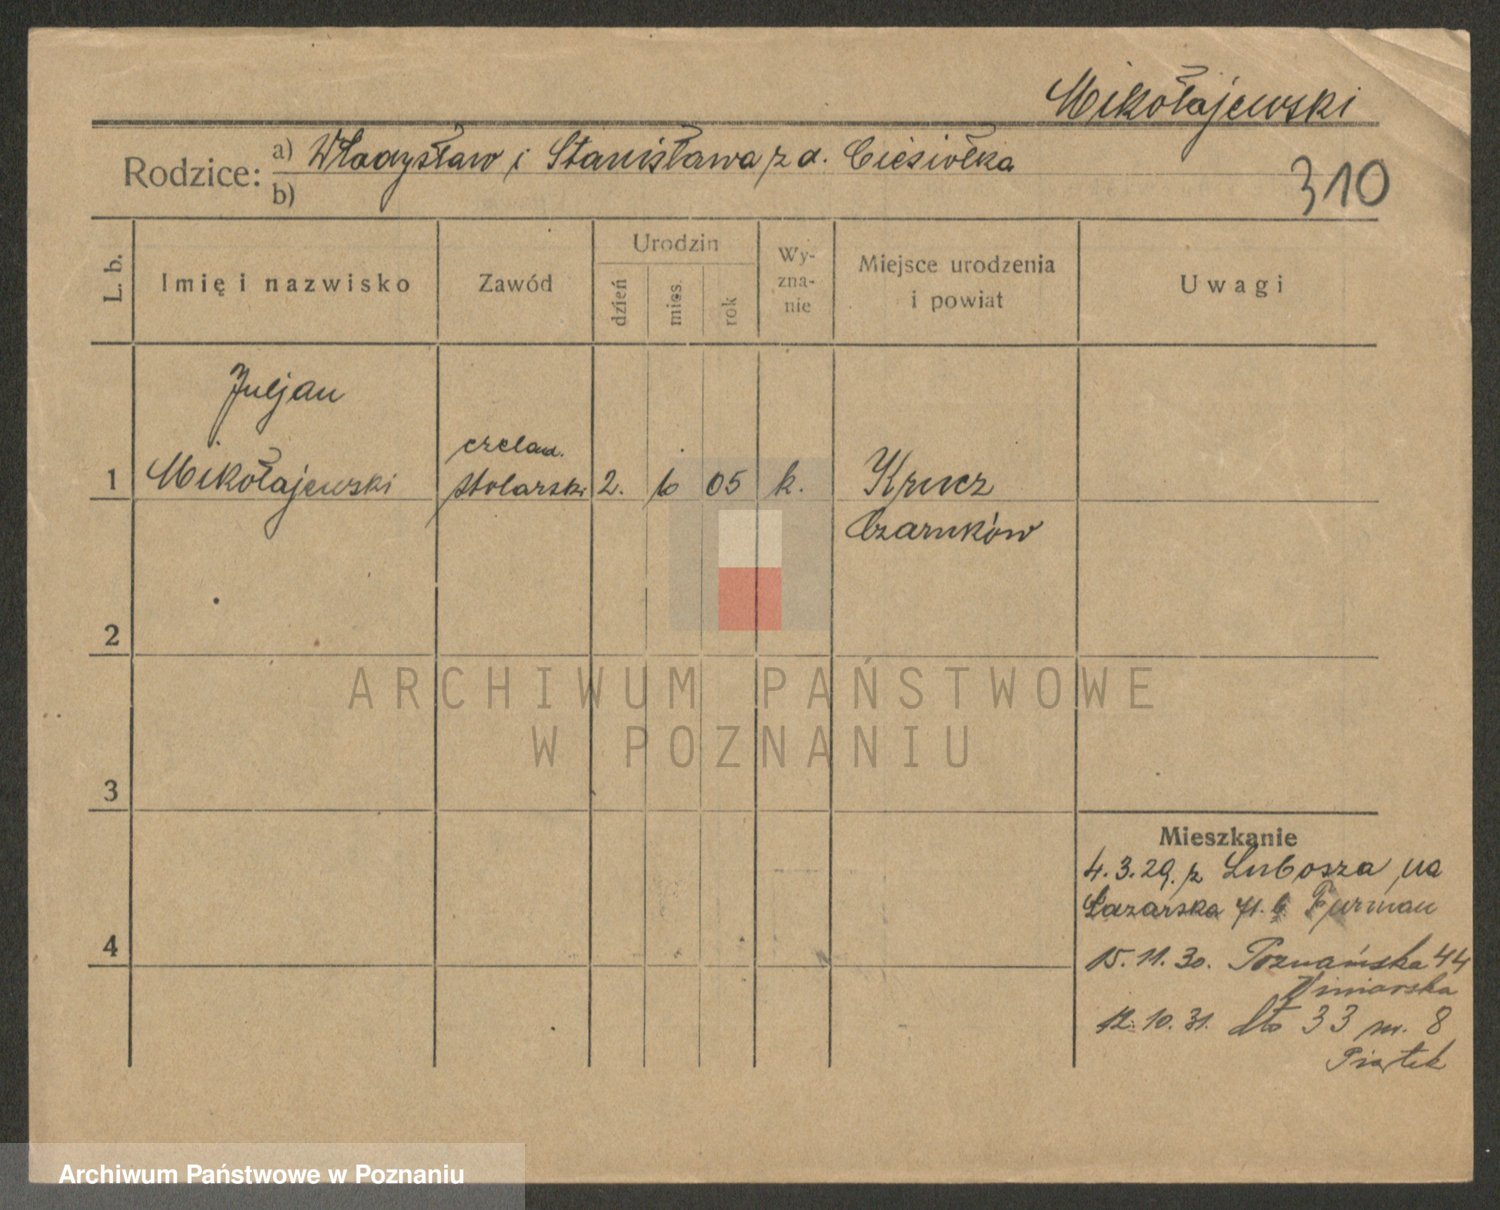 Mikołajewski
Rodzice: a) Władysław i Stanisława z d. Cieśiołka
b)
310
L. b.
Imię i nazwisko
Zawód
Urodzin
dzień
mies.
rok
Wy-
zna-
nie
Miejsce urodzenia
i powiat
Uwagi
Juljan
1 Mikołajewski
czelad.
stolarski
2. 6 05 k.
Krucz
Czarnków
2
ARCHIWUM PAŃSTWOWE
W POZNANIU
3
Mieszkanie
4.3.29. z Lubosza na
Łazarska Furman
4
15.11.30. Poznańska 44
12.10.31. dto 33 m. 8
Piątek
Archiwum Państwowe w Poznaniu